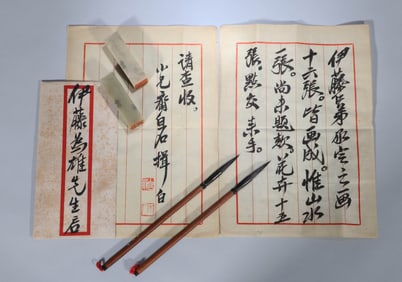 伊藤吾弟所定之画
十六張。皆画成。惟山水
一張。尚未題款。花卉十五
張。點交来手。
请查收。
小兄齊白石揖白
伊藤為雄先生啟